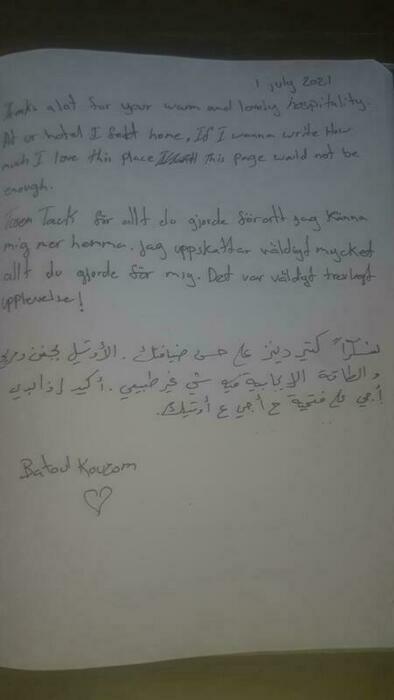 1 July 2021
Thanks a lot for your warm and lovely hospitality.
At or hotel I feelt home, If I wanna write How
much I love this place this page would not be
enough.
Tusen Tack för allt du gjorde förratt jag känna
mig mer hemma. Jag uppskattar väldigt mycket
allt du gjorde för mig. Det var väldigt trevligt
upplevelse!
شكراً كتير دينيز على حسن ضيافتك. الأوتيل بجنن
والطاقة الإيجابية فيه شي غير طبيعي. أكيد إذا بدي
أجي على فتحية ح أجي ع أوتيلك.
Batoul Kouzom